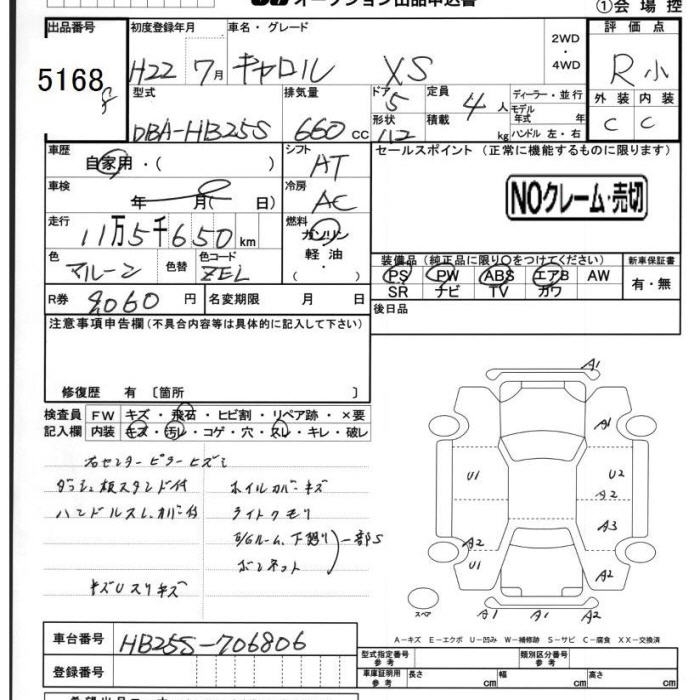 オークション出品申込書
①会場控
出品番号 初度登録年月 車名・グレード 評価点
5168 H22 7月 キャロル XS 2WD・4WD R小
型式 排気量 ドア 定員 ディーラー・並行 外装 内装
DBA-HB25S 660cc 5 4人 モデル年式 年 C C
形状 積載 kg ハンドル 左・右
車歴 シフト セールスポイント(正常に機能するものに限ります)
自家用・( ) AT
NOクレーム・売切
車検 年 月( 日) 冷房 AC
走行 11万5千650km 燃料 ガソリン・軽油・( )
色 マルーン 色替 色コード ZEL
装備品(純正品に限り○をつけてください) 新車保証書
PS PW ABS エアB AW 有・無
SR ナビ TV カワ
R券 円 名変期限 月 日
後日品
注意事項申告欄(不具合内容等は具体的に記入して下さい)
修復歴 有 〔箇所 〕
検査員 FW キズ・飛石・ヒビ割・リペア跡・×要
記入欄 内装 キズ・汚レ・コゲ・穴・スレ・キレ・破レ
右センターピラーヒズミ
ダッシュ板スタンド付 ホイルカバーキズ
ハンドルスレ、カバー付 ライトクモリ
E/Gルーム、下廻り 一部S
ボンネット
キズUスリキズ
A1
A1
U1 U2
A2
A3
A2
U1 A2
スペア A1 A1 A2
A-キズ E-エクボ U-凹み W-補修跡 S-サビ C-腐食 XX-交換済
車台番号 HB25S-706806
型式指定番号 参考 類別区分番号 参考
登録番号
車庫証明用 参考 長さ cm 幅 cm 高さ cm